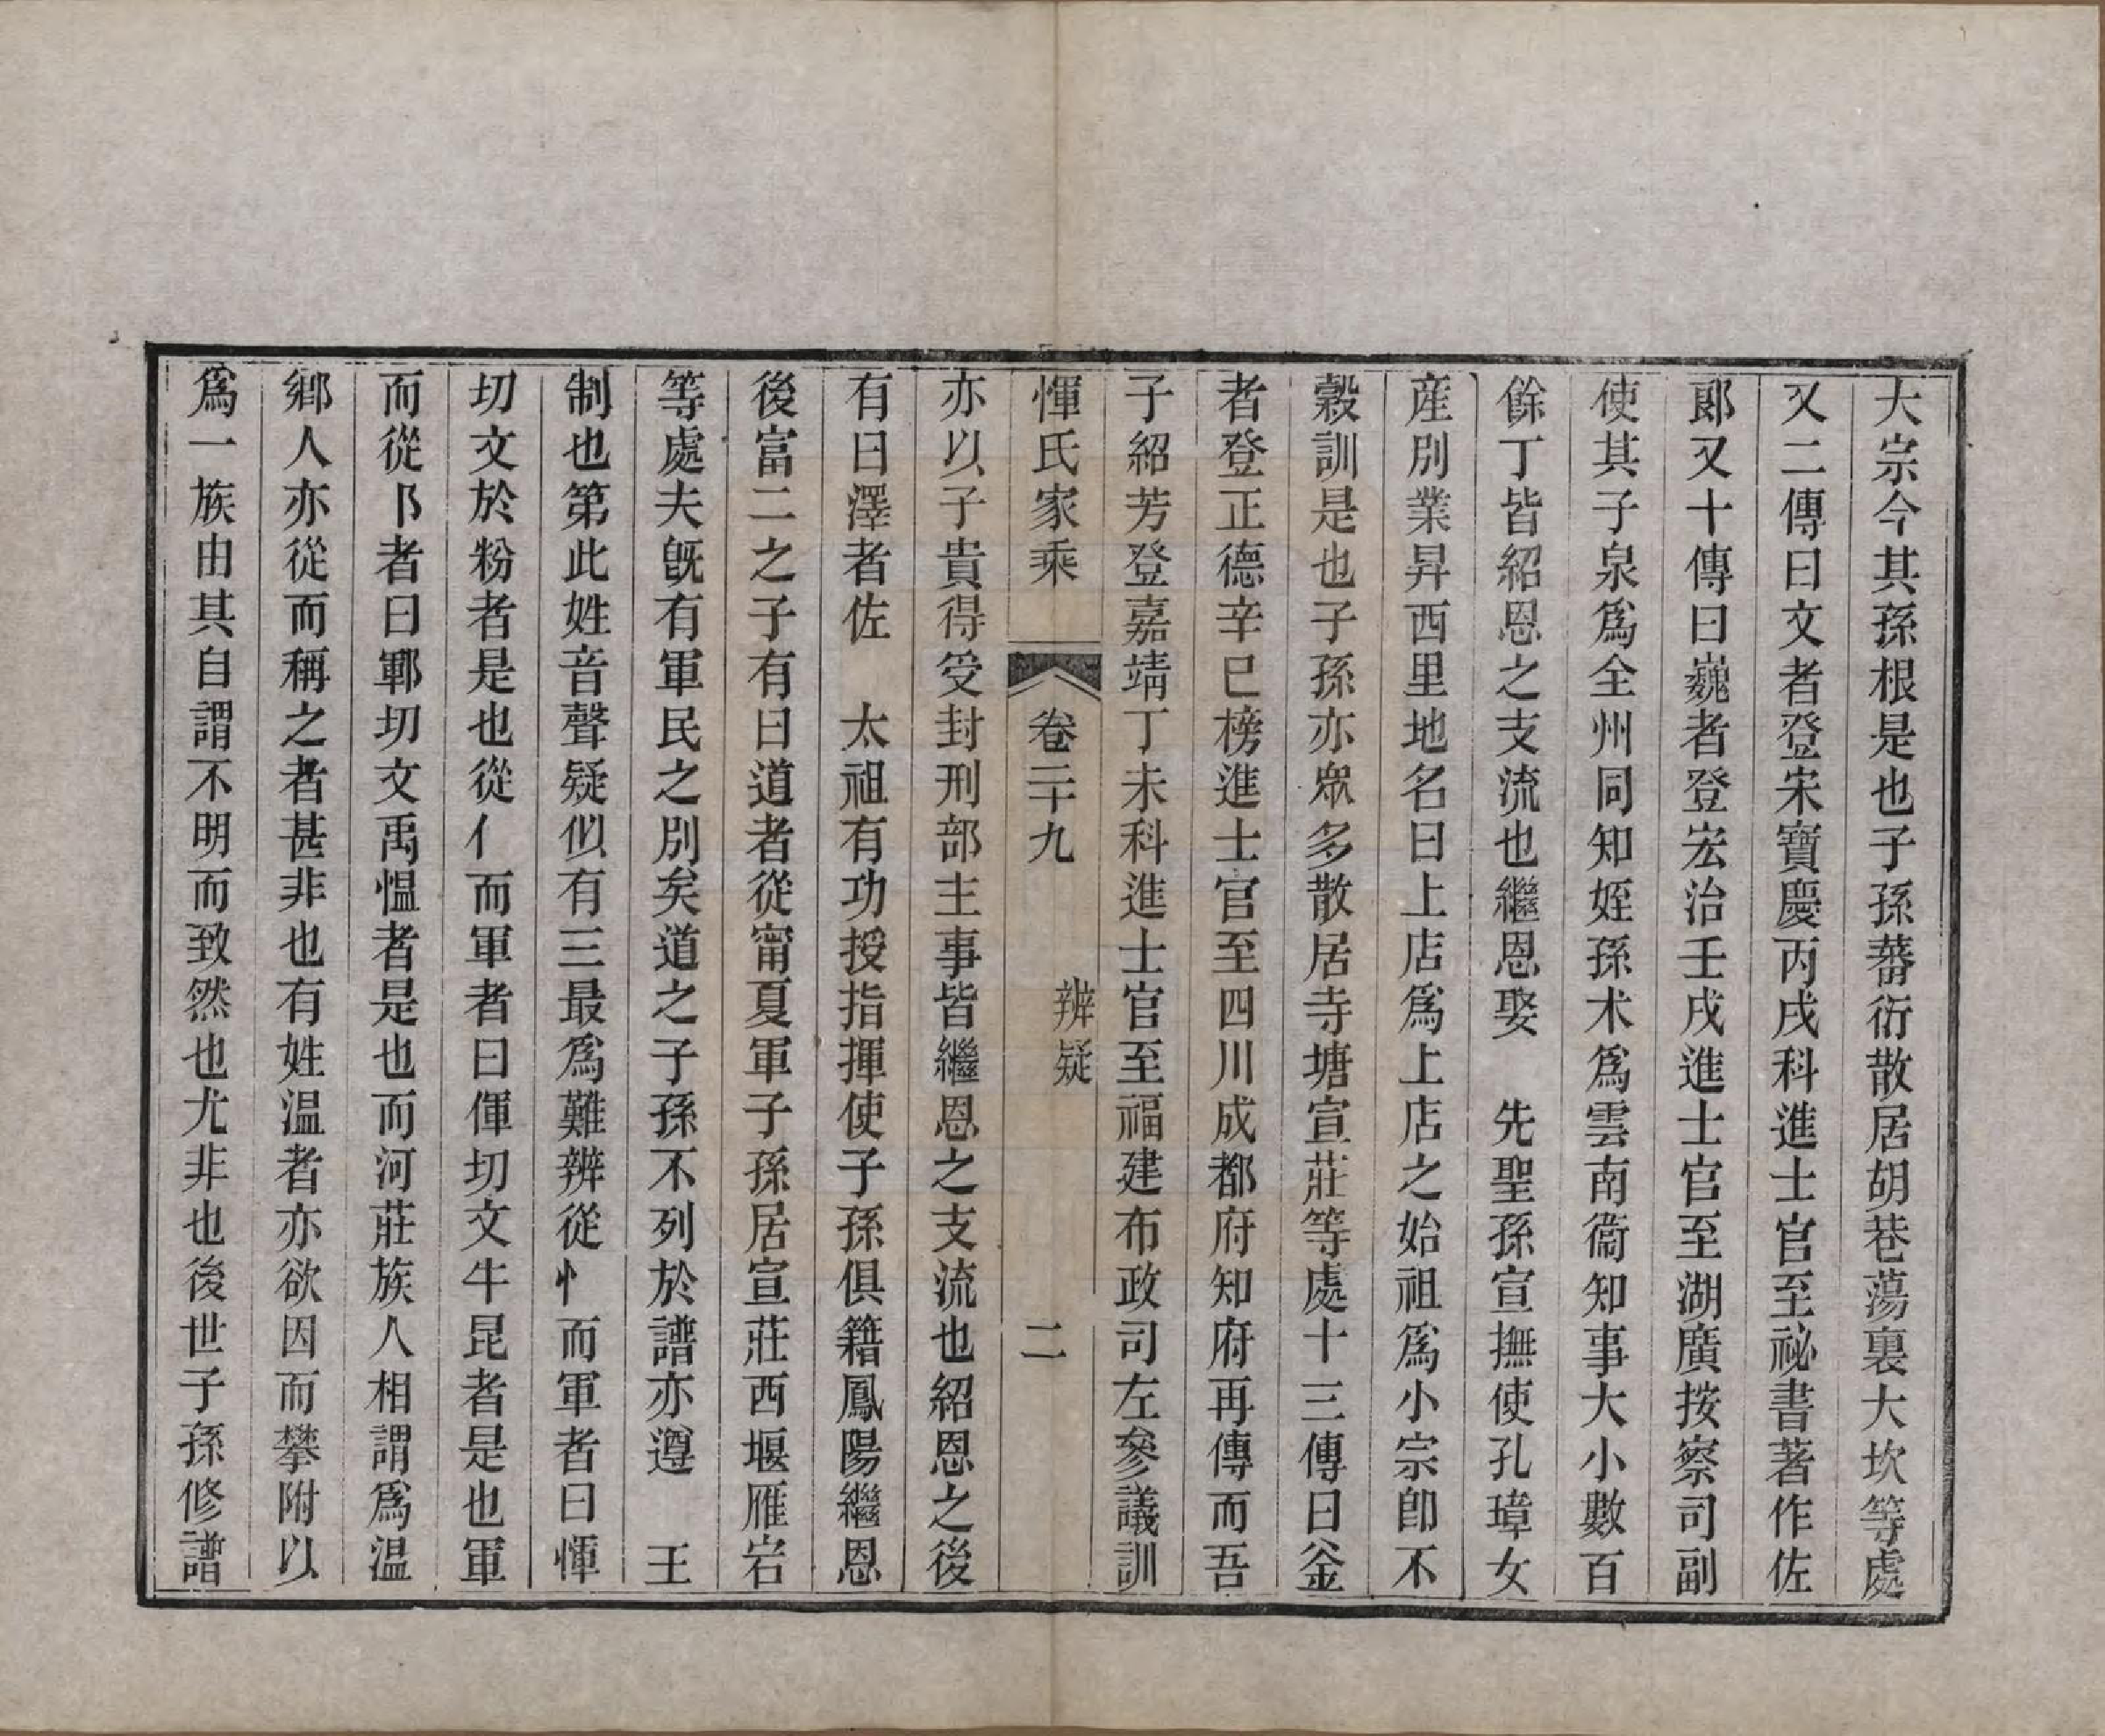 大宗今其孫根是也子孫蕃衍散居胡巷蕩裏大坎等處
又二傳曰文者登宋寶慶丙戌科進士官至祕書著作佐
郞又十傳曰巍者登宏治壬戌進士官至湖廣按察司副
使其子泉爲全州同知姪孫术爲雲南衞知事大小數百
餘丁皆紹恩之支流也繼恩娶　先聖孫宣撫使孔璋女
産別業昇西里地名曰上店爲上店之始祖爲小宗卽不
穀訓是也子孫亦眾多散居寺塘宣莊等處十三傳曰釡
者登正德辛巳榜進士官至四川成都府知府再傳而吾
子紹芳登嘉靖丁未科進士官至福建布政司左參議訓
惲氏家乘　卷二十九　辨疑　二
亦以子貴得受封刑部主事皆繼恩之支流也紹恩之後
有曰澤者佐　太祖有功授指揮使子孫俱籍鳳陽繼恩
後富二之子有曰道者從甯夏軍子孫居宣莊西堰雁岩
等處夫旣有軍民之別矣道之子孫不列於譜亦遵　王
制也第此姓音聲疑似有三最爲難辨從忄而軍者曰惲
切文於粉者是也從亻而軍者曰僤切文牛昆者是也軍
而從阝者曰鄆切文禹愠者是也而河莊族人相謂爲温
鄕人亦從而稱之者甚非也有姓温者亦欲因而攀附以
爲一族由其自謂不明而致然也尤非也後世子孫修譜